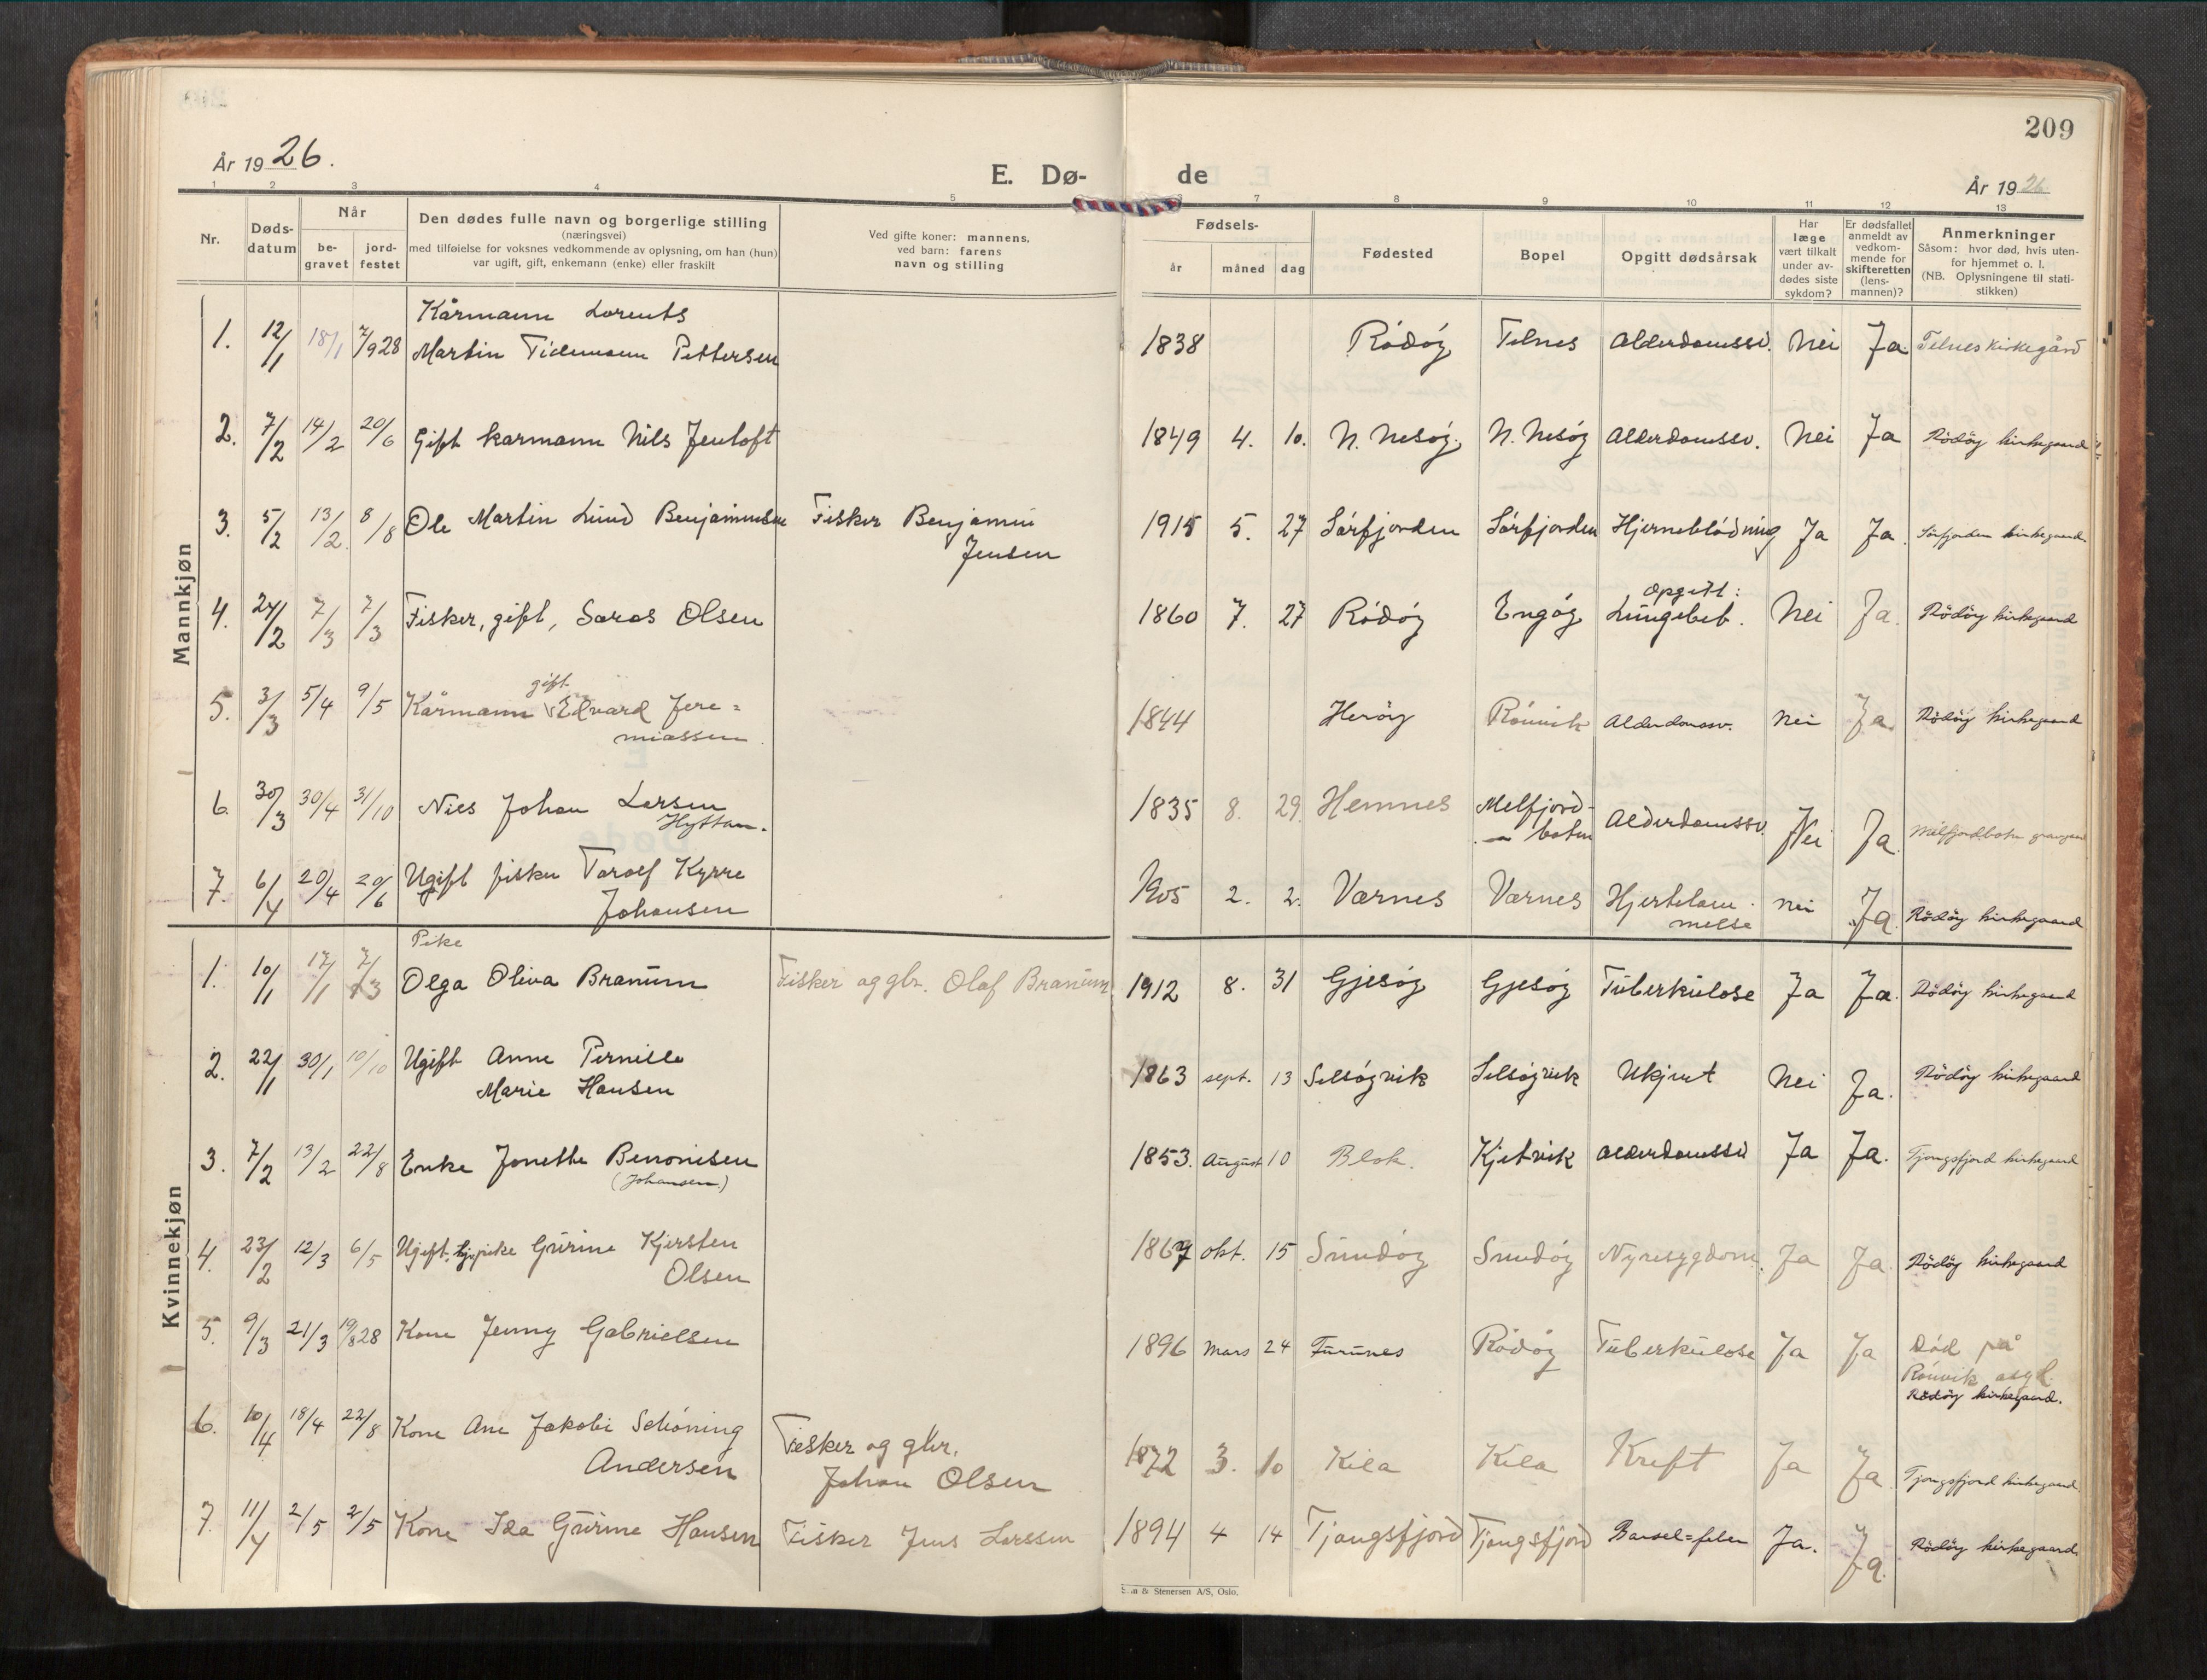 209
År 1926.
E. Dø-
de
År 1926
1 2 3 4 5 7 8 9 10 11 12 13
Nr.
Døds-
datum
Når
be-
gravet
jord-
festet
Den dødes fulle navn og borgerlige stilling
(næringsvei)
med tilføielse for voksnes vedkommende av oplysning, om han (hun)
var ugift, gift, enkemann (enke) eller fraskilt
Ved gifte koner: mannens,
ved barn: farens
navn og stilling
Fødsels-
år måned dag
Fødested
Bopel
Opgitt dødsårsak
Har
læge
vært tilkalt
under av-
dødes siste
sykdom?
Er dødsfallet
anmeldt av
vedkom-
mende for
skifteretten
(lens-
mannen)?
Anmerkninger
Såsom: hvor død, hvis uten-
for hjemmet o. l.
(NB. Oplysningene til stati-
stikken)
Mannkjøn
Kårmann Lorents
1. 12/1 18/1 7/9 28 Martin Tidemann Pettersen 1838 Rödöy Telnes Alderdomssv. Nei Ja. Telnes kirkegård
2. 7/2 14/2 20/6 Gift karmann Nils Jentoft 1849 4. 10. N. Nesöy. N. Nesöy Alderdomssv. Nei Ja Rödöy kirkegaard
3. 5/2 13/2. 8/8 Ole Martin Lund Benjaminsen Fisker Benjamin 1915 5. 27 Sörfjorden Sörfjorden Hjerneblödning Ja Ja. Sörfjorden kirkegaard
Jensen
opgitt:
4. 24/2 7/3 7/3 Fisker, gift, Saras Olsen 1860 7. 27 Rödöy Engöy Lungebet. Nei Ja. Rödöy kirkegaard
gift
5. 3/3 5/4 9/5 Kårmann Edvard Jere= 1844 Heröy Rönvik Alderdomssv. Nei Ja. Rödöy kirkegaard
miassen
6. 30/3 30/4 31/10 Nils Johan Larsen 1835 8. 29. Hemnes Melfjord- Alderdomssv. Nei Ja. Melfjordbotn
Hyttan. botn
7. 6/4 20/4 20/6 Ugift fisker Toralf Kyrre 1905 2. 2. Værnes Værnes Hjertelam- nei Ja. Rödöy kirkegaard
Johansen melse
Kvinnekjøn
Pike
1. 10/1 17/1 7/3 Olga Oliva Branum Fisker og gbr. Olaf Branum 1912 8. 31 Gjesöy Gjesöy Tuberkulose Ja Ja. Rödöy kirkegaard
2. 22/1 30/1 10/10 Ugift Anne Pernille 1863 sept. 13 Selsöyvik Selsöyvik Ukjent Nei Ja. Rödöy kirkegaard
Marie Hansen
3. 7/2 13/2 22/8 Enke Jonette Benonisen 1853. August 10 Blok. Kjetvik alderdomssv Ja Ja. Tjongsfjord kirkegaard
(Johansen)
4. 23/2 12/3 6/5 Ugift, tj.pike Gurine Kjersten 1867 okt. 15 Sundöy Sundöy Nyresygdom. Ja Ja. Rödöy kirkegaard
Olsen
5. 9/3 21/3 19/8 28 Kone Jenny Gabrielsen 1896 Mars 24 Furunes Rödöy Tuberkulose Ja Ja Död på
Rönvik asyl.
Rödöy kirkegaard.
6. 10/4 18/4 22/8 Kone Ane Jakobi Schöning Fisker og gbr. 1872 3. 10 Kila Kila Kreft Ja Ja Tjongsfjord kirkegaard.
Andersen Johan Olsen
7. 11/4 2/5 2/5 Kone Ida Gurine Hansen Fisker Jens Larssen 1894 4 14 Tjongsfjord Tjongsfjord Barsel=feber Ja. Ja. Rödöy kirkegaard.
& Stenersen A/S, Oslo.